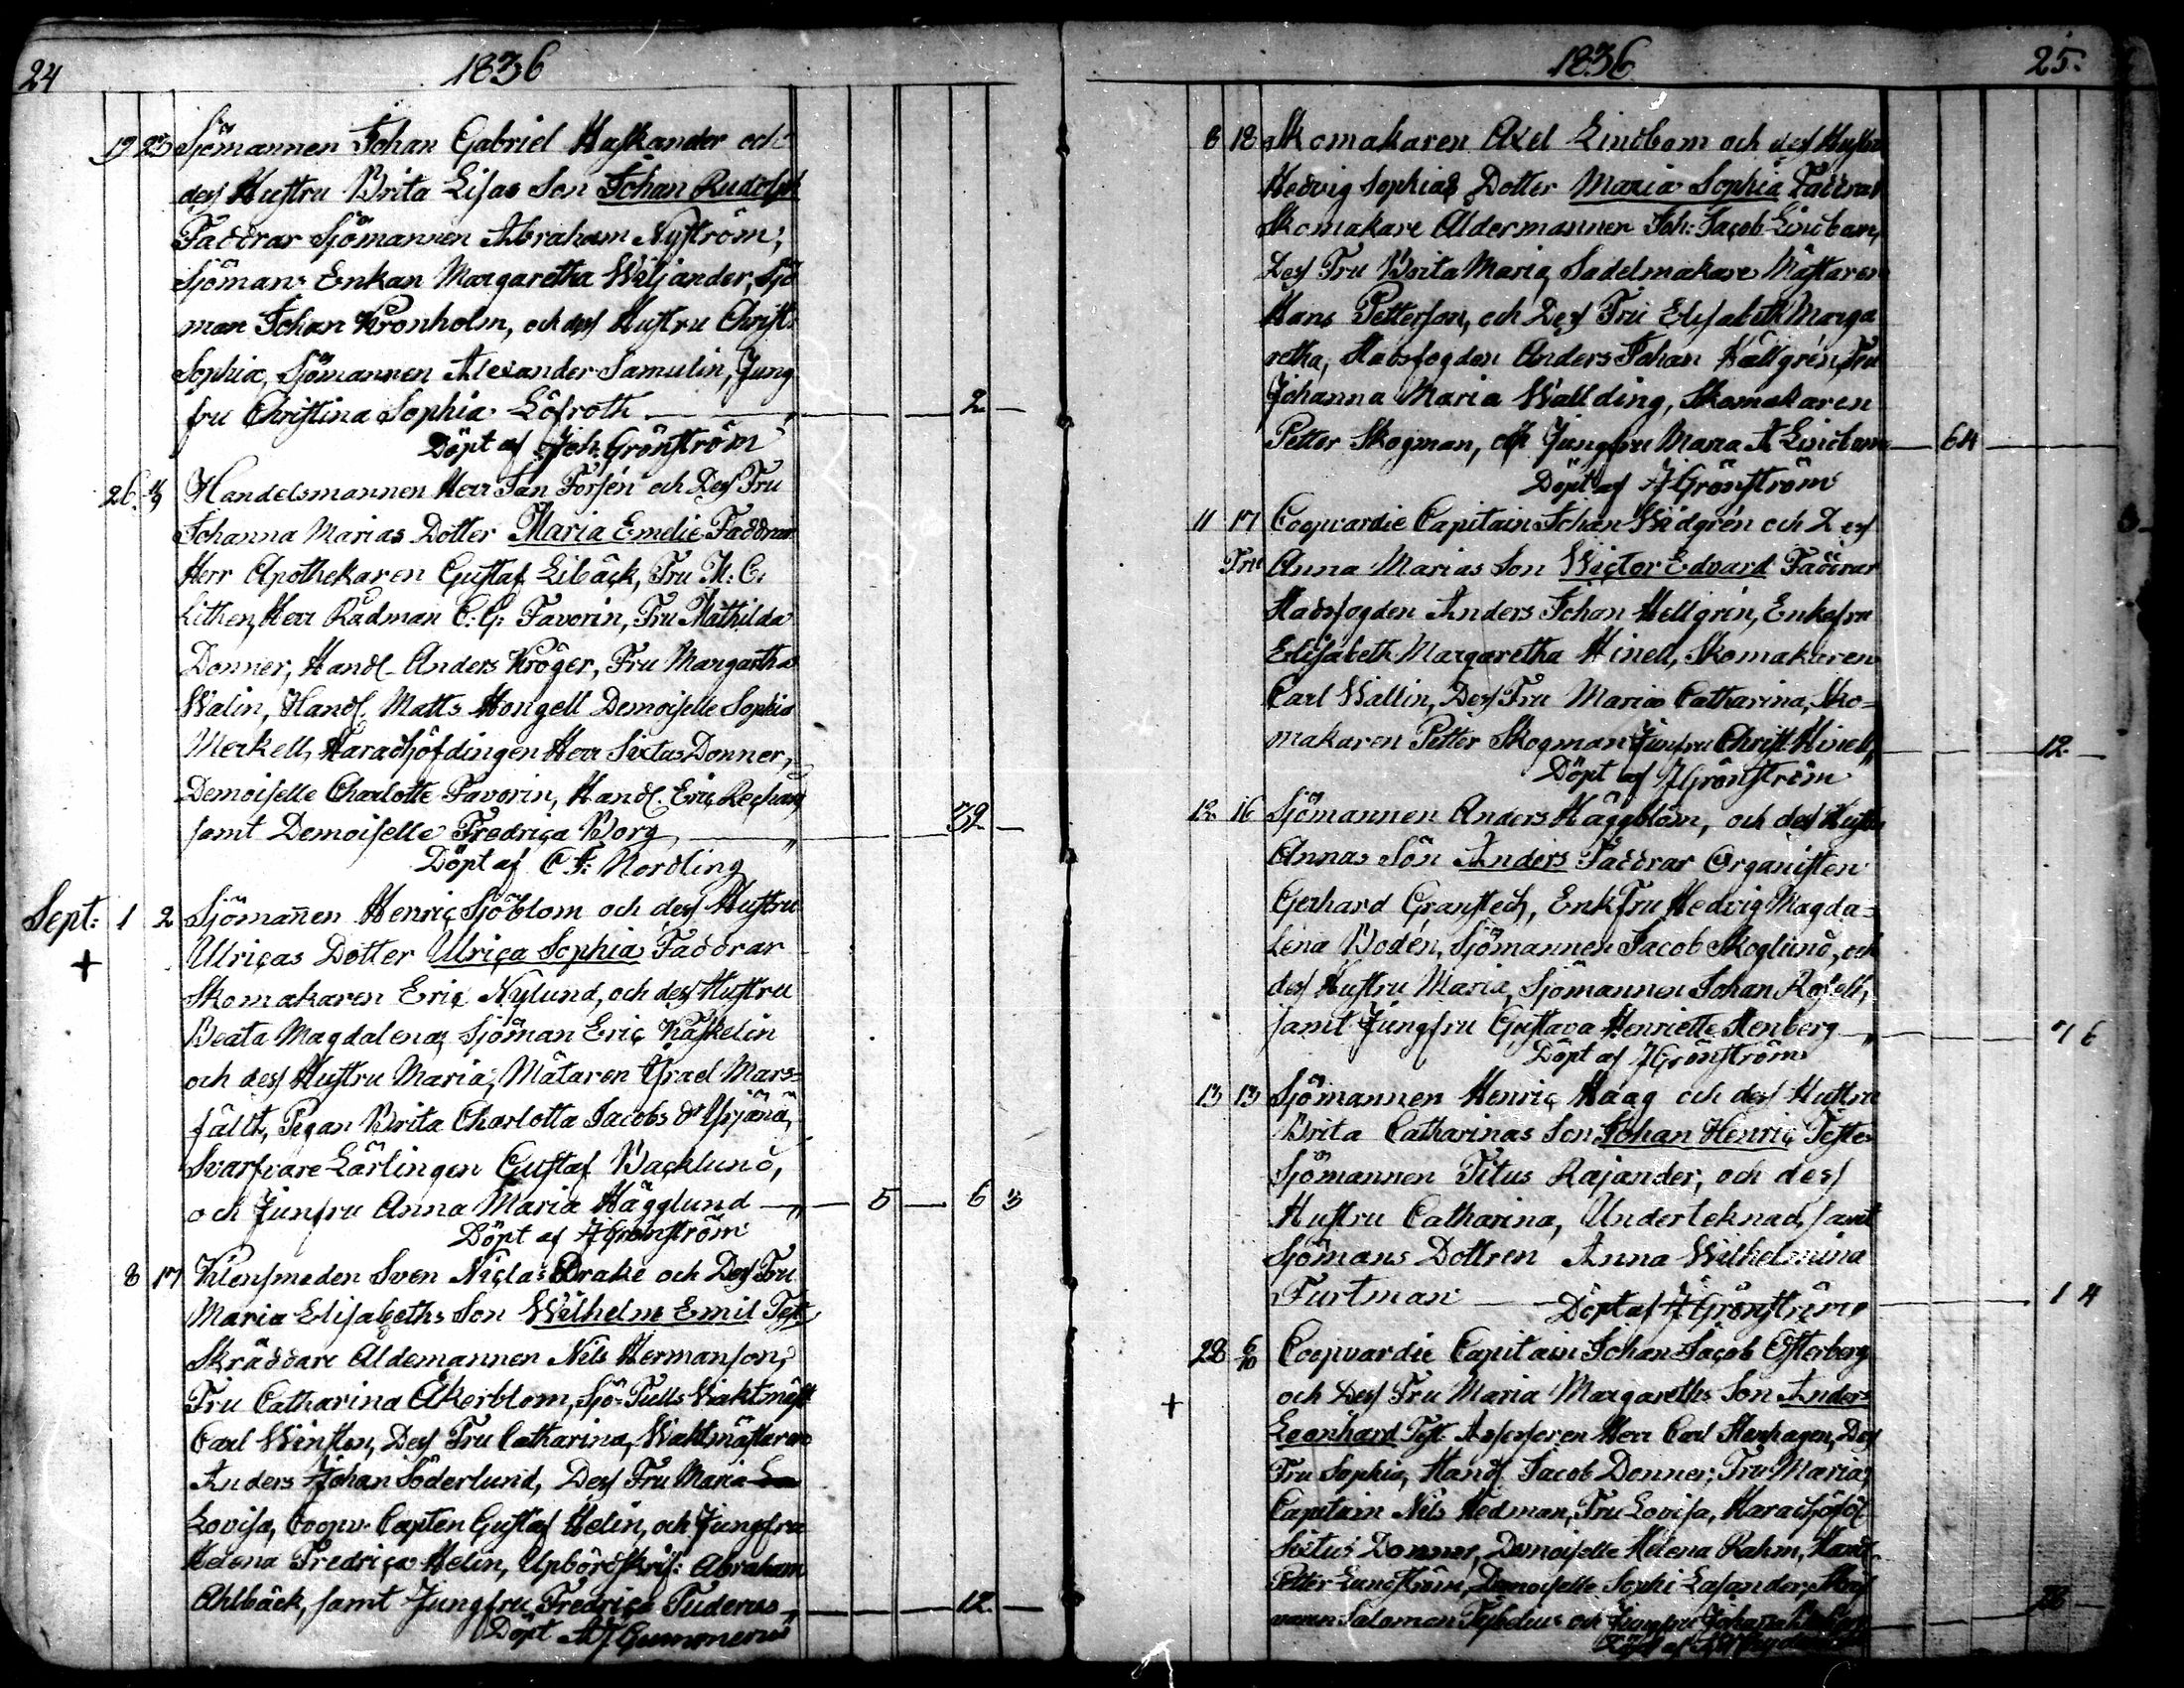 24 1836
19 23 Sjömannen Johan Gabriel Haskander och
dess Hustru Brita Lisas Son Johan Rudolph
Faddrar Sjömannen Abraham Nyström,
Sjömans Enkan Margaretha Wiljander, Sjö
man Johan Kronholm, och dess Hustru Christ:
Sophia, Sjömannen Alexander Samulin, Jung
fru Christina Sophia Löfroth — " — 2 —
Döpt af Joh. Grönström
26. 4/9 Handelsmannen Herr Jan Forsén och Dess Fru
Johanna Marias Dotter Maria Emelie Faddrar
Herr Apothekaren Gustaf Libäck, Fru M: C:
Lithen, Herr Rådman C: G: Favorin, Fru Mathilda
Donner, Handl. Anders Kröger, Fru Margartha
Walin, Handl. Matts Hongell Demoiselle Sophia
Merkell, Haradshöfdingen Herr Sixtus Donner,
Demoiselle Charlotte Favorin, Handl. Eric
samt Demoiselle Fredrica Borg — " — 32 —
Döpt af C F: Nordling
Sept: 1 2 Sjömannen Henric Sjöblom och dess Hustru
+ Ulricas Dotter Ulrica Sophia Faddrar
Skomakaren Eric Nylund, och dess Hustru
Beata Magdalena, Sjöman Eric Kaskelin
och dess Hustru Maria, Mätaren Israel Mars=
fällt, Pigan Brita Charlotta Jacobs dr
Svarfvare Lärlingen Gustaf Backlund,
och Junfru Anna Maria Hägglund — " — 5 — 6 3
Döpt af J Grönström
8 17 Klensmeden Sven Niclas Brake och Dess Fru
Maria Elisabeths Son Wilhelm Emil Test
Skräddare Aldemannen Nils Hermanson,
Fru Catharina Åkerblom, Sjö-Tulls Vaktmäst
Carl Winsten, Dess Fru Catharina, Waktmästaren
Anders Johan Söderlund, Dess Fru Maria
Lovisa, Coopv. Capten Gustaf Helin, och Jungfru
Helena Fredrica Helin, Upbördskrif: Abraham
Ahlbäck, samt Jungfru Fredrica Tuderus " — 12 —
Döpt Gummerus
1836 25.
8 18 Skomakaren Axel Lindbom och dess Hustru
Hedvig Sophias Dotter Maria Sophia Faddrar
Skomakare Aldermannen Joh: Jacob Lindbom,
Dess Fru Brita Maria, Sadelmakare Mästaren
Hans Petterson, och Dess Fru Elisabeth Marga
retha, Stadsfogden Anders Johan Hällgrén, Fru
Johanna Maria Wallding, Skomakaren
Petter Skogman, och Jungfru Maria A Lindbom — 64 —
Döpt af J Grönström
11 17 Coopvardie Capitain Johan Widgrén och Dess
Fru Anna Marias Son Wictor Edvard Faddrar
Stadsfogden Anders Johan Hellgrén, Enkefru
Elisabeth Margaretha Hinell, Skomakaren
Carl Wallin, Dess Fru Maria Catharina, Sko=
makaren Petter Skogman Junfru Christ Hinell " — 12 —
Döpt af J Grönström
12. 16 Sjömannen Anders Häggblom, och dess Hustru
Annas Son Anders Faddrar Organisten
Gerhard Granstedt, Enkfru Hedvig Magda=
lena Bodén, Sjömannen Jacob Skoglund, och
dess Hustru Maria, Sjömannen Johan Rosell,
samt Jungfru Gustava Henriette Stenberg — " — " 1 6
Döpt af J Grönström
13 13 Sjömannen Henric Haag och dess Hustru
Brita Catharinas Son Johan Henric Teste
Sjömannen Titus Rajander, och dess
Hustru Catharina, Underteknad, samt
Sjömans Dottren Anna Wilhelmina
Furtman — Döpt af J Grönström — 1 4
28 6/10 Coopvardie Capitain Johan Jacob Österberg
+ och Dess Fru Maria Margareths Son Anders
Leonhard Test. Assessoren Herr Carl Stenhagen, Dess
Fru Sophia, Handl Jacob Donner, Fru Maria,
Capitain Nils Hedman, Fru Lovisa, Haradshöfd
Sixtus Donner, Demoiselle Helena Rahm, Handl
Petter Lundström, Demoiselle Sophi Lasander,
Salomon och Jungfru Johanna — 28 —
Döpt af